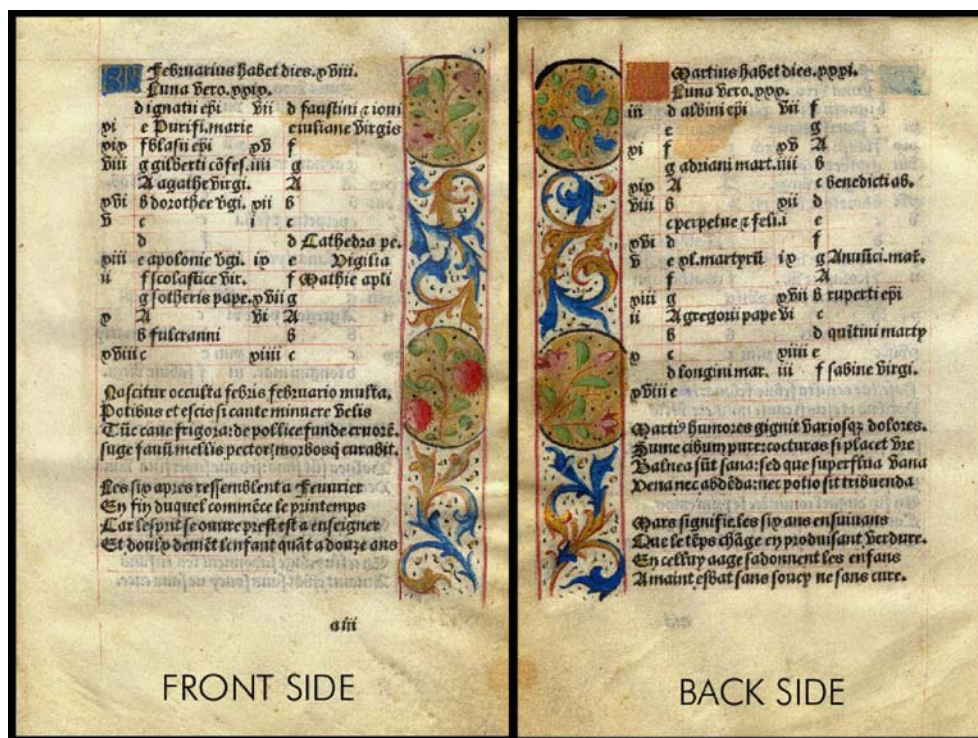 Februarius habet dies. xviii.
Luna vero. xxix.
d ignatii epi vii d faustini ⁊ ioni
xi e Purifi. marie e iuliane virgis
xix f blasii epi xv f
viii g gilberti cōfes. iiii g
A agathe virgi. A
xvi b dorothee vgi. xii b
v c i c
d d Cathedra pe.
xiii e apolonie vgi. ix e Vigilia
ii f scolastice vir. f Mathie apli
g sotheris pape. xvii g
x A vi A
b fulcranni b
xviii c xiiii c
Nascitur occulta febris februario multa.
Potibus et escis si caute minuere velis
Tūc caue frigora: de pollice funde cruorē.
suge fauū mellis pectoris morbosq̄ curabit.
Les six apres ressemblent a Feurier
En fin duquel commēce le printemps
Car lesprit se ouure prest est a enseigner
Et doulx deuiēt lenfant quāt a douze ans
a iii
FRONT SIDE
Martius habet dies. xxxi.
Luna vero. xxx.
iii d albini epi vii f
e g
xi f xv A
g adriani mart. iiii b
xix A c benedicti ab.
viii b xii d
c perpetue ⁊ feli. i e
xvi d f
v e xl. martyrū ix g Anūci. mar.
f A
xiii g xvii b ruperti epi
ii A gregorii pape vi c
b d quītini marty
x c xiiii e
d longini mar. iii f sabine virgi.
xviii e
Martiꝰ humores gignit variosqꝫ dolores.
Sume cibum pure: cocturas si placet vre
Balnea sūt sana: sed que superflua vana
Vena nec abdēda: nec potio sit tribuenda
Mars signifie les six ans ensuiuans
Que le tēps chāge en produisant verdure.
En celluy aage sadonnent les enfans
A maint esbat sans soucy ne sans cure.
BACK SIDE